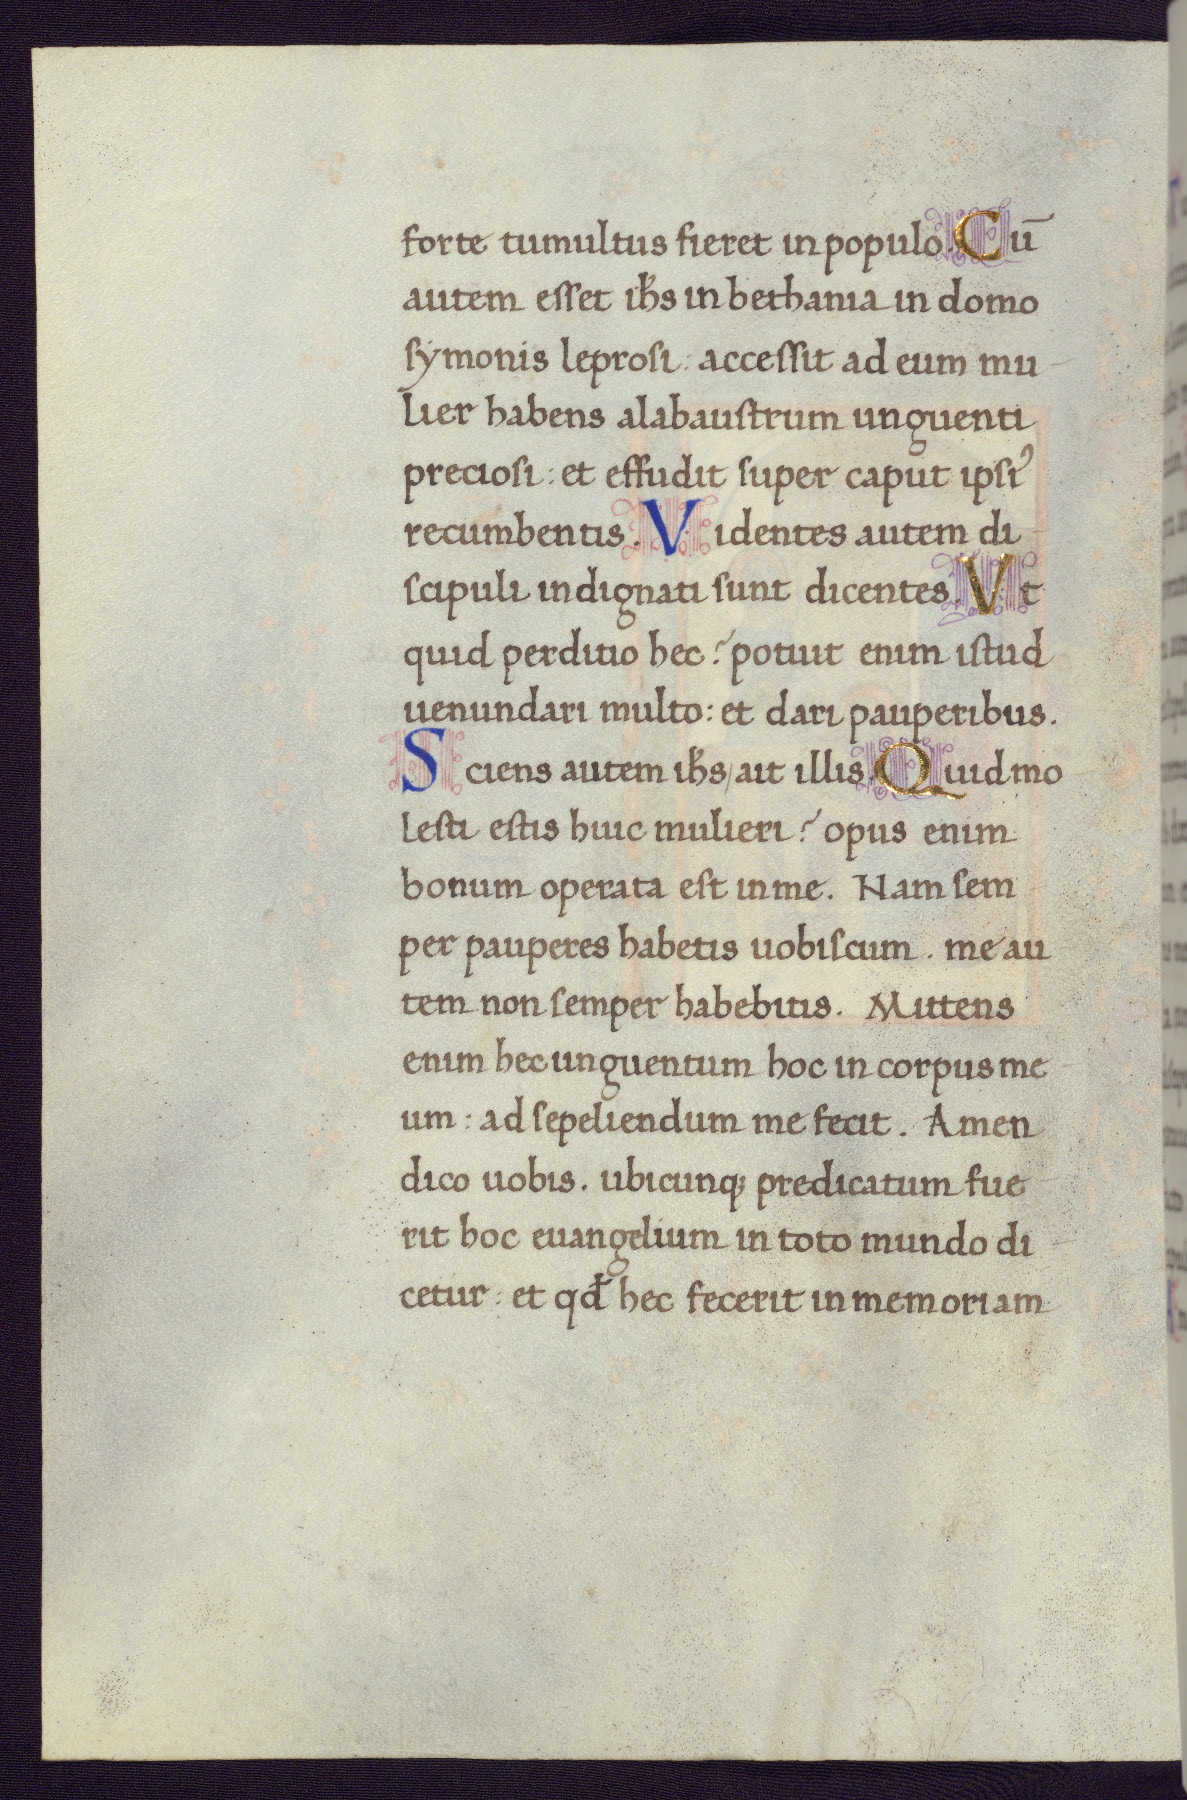 forte tumultus fieret in populo. Cū
autem esset ihs in bethania in domo
symonis leprosi: accessit ad eum mu
lier habens alabaustrum unguenti
preciosi: et effudit super caput ipsi᾽
recumbentis. Videntes autem di
scipuli indignati sunt dicentes. Vt
quid perditio hec? potuit enim istud
uenundari multo: et dari pauperibus.
Sciens autem ihs/ ait illis. Quid mo
lesti estis huic mulieri? opus enim
bonum operata est in me. Nam sem
per pauperes habetis uobiscum. me au
tem non semper habebitis. Mittens
enim hec unguentum hoc in corpus me
um: ad sepeliendum me fecit. Amen
dico uobis. ubicunq; predicatum fue
rit hoc euangelium in toto mundo di
cetur: et qđ hec fecerit in memoriam